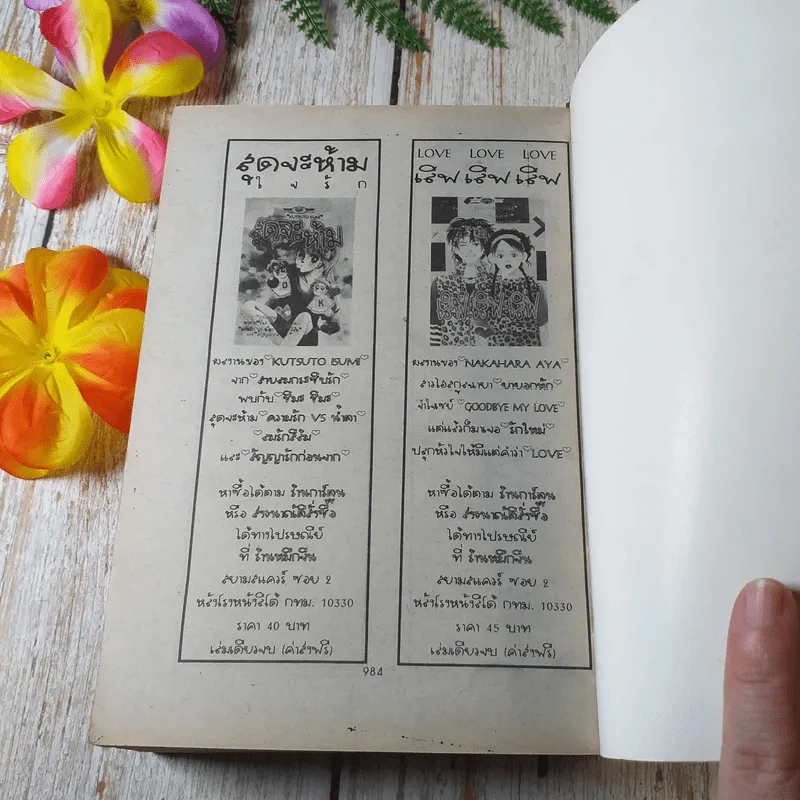 สุดจะห้าม
ใจรัก
สุดจะห้าม
ผลงานของ♡KUTSUTO ISUMI♡
จาก♡สายลมกระซิบรัก♡
พบกับ♡ชิมะ ชิมะ♡
สุดจะห้าม♡ความรัก VS น้ำตา♡
และ♡สัญญารักก่อนจาก♡
หาซื้อได้ตาม ร้านการ์ตูน
หรือ ส่งธนาณัติสั่งซื้อ
ได้ทางไปรษณีย์
ที่ ร้านหมึกจีน
สยามสแควร์ ซอย 2
หลังโรงหนังลิโด้ กทม. 10330
ราคา 40 บาท
เล่มเดียวจบ (ค่าส่งฟรี)
LOVE LOVE LOVE
เลิฟ เลิฟ เลิฟ
เลิฟ เลิฟ เลิฟ
ผลงานของ♡NAKAHARA AYA♡
สาวไฮสกูลฉายา♡ยายอกหัก♡
จำใจเซย์♡GOODBYE MY LOVE♡
แต่แล้วก็มาเจอ♡รักใหม่♡
ปลุกหัวใจให้มีแต่คำว่า♡LOVE♡
หาซื้อได้ตาม ร้านการ์ตูน
หรือ ส่งธนาณัติสั่งซื้อ
ได้ทางไปรษณีย์
ที่ ร้านหมึกจีน
สยามสแควร์ ซอย 2
หลังโรงหนังลิโด้ กทม. 10330
ราคา 45 บาท
เล่มเดียวจบ (ค่าส่งฟรี)
984